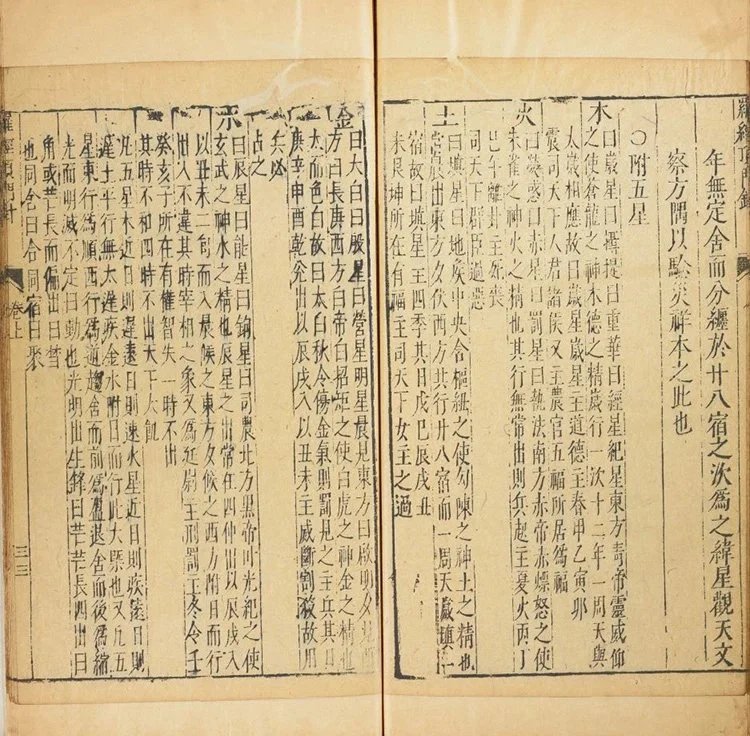 羅經頂門針
年無定舍而分纏於廿八宿之次爲之緯星觀天文
察方隅以驗災祥本之此也
○附五星
木曰歲星曰攝提曰重華曰經星紀星東方靑帝靈威仰
之使蒼龍之神木德之精歲行一次十二年一周天與
太歲相應故曰歲星歲星主道德主春甲乙寅卯
震司天下人君諸侯又主農官五福所居爲福
火曰熒惑曰赤星曰罰星曰執法南方赤帝赤熛怒之使
朱雀之神火之精也其行無常出則兵起主夏火丙丁
巳午離卦主死喪
司天下群臣過惡
土曰鎮星曰地候中央令樞紐之使勾陳之神土之精也
常晨出東方夕伏西方共行廿八宿而一周天歲鎮一
宿故曰鎮星主四季其日戊巳辰戌丑
未艮坤所在有福主司天下女主之過
金曰太白曰殷星曰營星明星晨見東方曰啟明夕見
方曰長庚西方白帝白招炬之使白虎之神金之精也
太而色白故曰太白秋令傷金氣則罰見之主兵其日
庚辛申酉乾兌出以辰戌入以丑未主威斷割殺故用
兵必
占之
水曰辰星曰能星曰鉤星曰司農北方黑帝叶光紀之使
玄武之神水之精也辰星之出常在四仲出以辰戌入
以丑未二旬而入晨候之東方夕候之西方附日而行
出入不違其時宰相之象又爲廷尉主刑罰主冬令壬
癸亥子所在有權智失一時不出
其時不和四時不出天下大飢
凡五星木近日則遲遠日則速火星近日則疾遠日則
遲土平行無太遲疾金水附日而行此大槩也又凡五
星東行爲順西行爲逆趨舍而前爲盈退舍而後爲縮
光而明滅不定曰動也光明出生鋒曰芒芒長四出曰
角或芒長而偏出曰彗
也同舍曰合同宿曰聚
羅經頂門針
卷上
三三